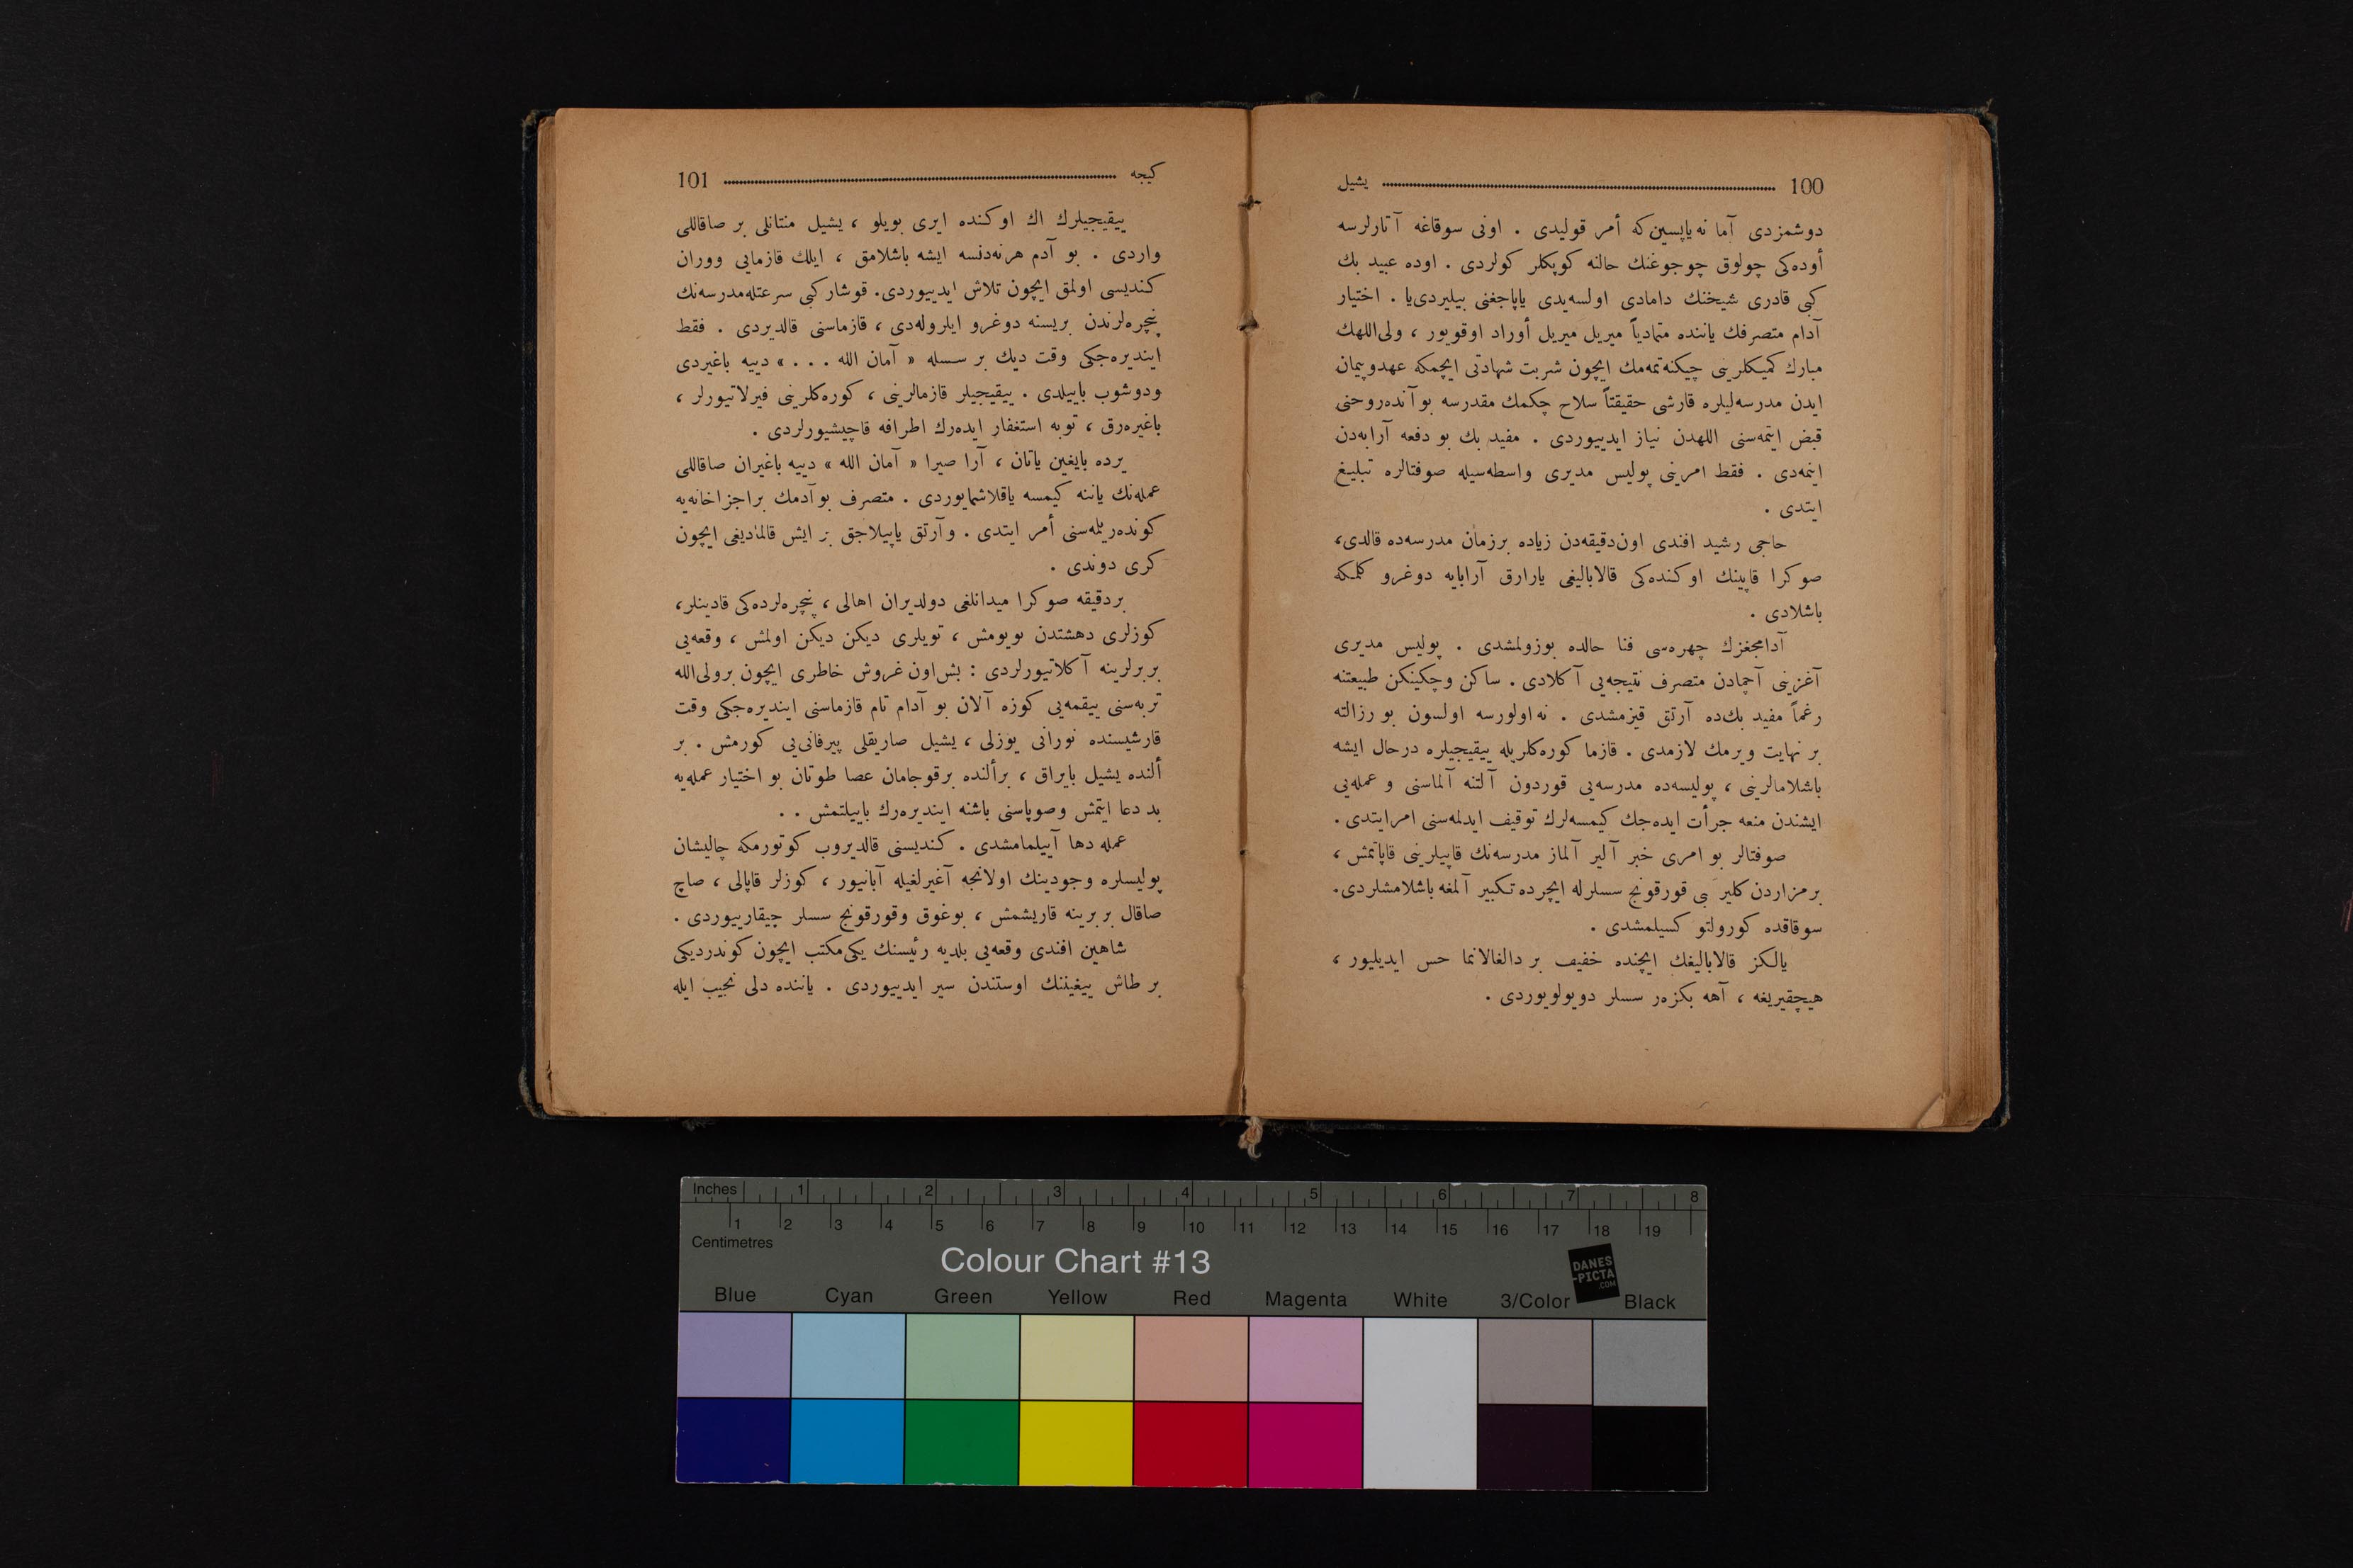 100 يشيل
دوشمزدی آما نه‌یاپسین‌که أمر قولیدی . اونی سوقاغه آتارلرسه
أوده‌کی چولوق چوجوغنك حالنه کوپکلر کولردی . اوده عبید بك
کبی قادری شیخنك دامادی اولسه‌یدی یاپاجغنی بیلیردی‌یا . اختیار
آدام متصرفك یاننده متمادیاً میریل میریل أوراد اوقویور ، ولی‌اللهك
مبارك کمیکلرینی چیکنه‌تمه‌مك ایچون شربت شهادتی ایچمکه عهدوپیمان
ایدن مدرسه‌لیلره قارشی حقیقتاً سلاح چکمك مقدرسه بو آنده‌روحنی
قبض ایتمه‌سنی اللهدن نیاز ایدییوردی . مفید بك بو دفعه آرابه‌دن
اینمه‌دی . فقط امرینی پولیس مدیری واسطه‌سیله صوفتالره تبلیغ
ایتدی .
حاجی رشید افندی اون‌دقیقه‌دن زیاده برزمان مدرسه‌ده قالدی،
صوکرا قاپینك اوکنده‌کی قالابالیغی یارارق آرابایه دوغرو کلمکه
باشلادی .
آدامجغزك چهره‌سی فنا حالده بوزولمشدی . پولیس مدیری
آغزینی آچمادن متصرف نتیجه‌یی آکلادی . ساکن وچکینکن طبیعتنه
رغماً مفید بك‌ده آرتق قیزمشدی . نه اولورسه اولسون بو رزالته
بر نهایت ویرمك لازمدی . قازما کوره‌کلریله ییقیجیلره درحال ایشه
باشلامالرینی ، پولیسه‌ده مدرسه‌یی قوردون آلتنه آلماسنی و عمله‌یی
ایشندن منعه جرأت ایده‌جك کیمسه‌لرك توقیف ایدلمه‌سنی امرایتدی .
صوفتالر بو امری خبر آلیر آلماز مدرسه‌نك قاپیلرینی قاپاتمش ،
برمزاردن کلیر بی قورقونج سسلرله ایچرده تکبیر آلمغه باشلامشلردی.
سوقاقده کورولتو کسیلمشدی .
یالکز قالابالیغك ایچنده خفیف بر دالغالانما حس ایدیلیور ،
هیچقیریغه ، آهه بکزه‌ر سسلر دویولویوردی .
کیجه 101
ییقیجیلرك اك اوکنده ایری بویلو ، یشیل منتانلی بر صاقاللی
واردی . بو آدم هرنه‌دنسه ایشه باشلامق ، ایلك قازمایی ووران
کندیسی اولمق ایچون تلاش ایدییوردی. قوشارکبی سرعتله‌مدرسه‌نك
پنچره‌لرندن بریسنه دوغرو ایلروله‌دی ، قازماسنی قالدیردی . فقط
ایندیره‌جکی وقت دیك بر سسله « آمان الله . . . » دییه باغیردی
ودوشوب باییلدی . ییقیجیلر قازمالرینی ، کوره‌کلرینی فیرلاتیورلر ،
باغیره‌رق ، توبه استغفار ایده‌رك اطرافه قاچیشیورلردی .
یرده بایغین یاتان ، آرا صیرا « آمان الله » دییه باغیران صاقاللی
عمله‌نك یاننه کیمسه یاقلاشمایوردی . متصرف بو آدمك براجزاخانه‌یه
کونده‌ریلمه‌سنی أمر ایتدی . وآرتق یاپیلاجق بر ایش قالمادیغی ایچون
کری دوندی .
بردقیقه صوکرا میدانلغی دولدیران اهالی ، پنچره‌لرده‌کی قادینلر،
کوزلری دهشتدن بویومش ، تویلری دیکن دیکن اولمش ، وقعه‌یی
بربرلرینه آکلاتیورلردی : بش‌اون غروش خاطری ایچون برولی‌الله
تربه‌سنی ییقمه‌یی کوزه آلان بو آدام تام قازماسنی ایندیره‌جکی وقت
قارشیسنده نورانی یوزلی ، یشیل صاریقلی پیرفانی‌یی کورمش . بر
ألنده یشیل بایراق ، برألنده برقوجامان عصا طوتان بو اختیار عمله‌یه
بد دعا ایتمش وصوپاسنی باشنه ایندیره‌رك باییلتمش . .
عمله دها آییلمامشدی . کندیسنی قالدیروب کوتورمکه چالیشان
پولیسلره وجودینك اولانجه آغیرلغیله آبانیور ، کوزلر قاپالی ، صاچ
صاقال بربرینه قاریشمش ، بوغوق وقورقونج سسلر چیقارییوردی .
شاهین افندی وقعه‌یی بلدیه رئیسنك یکی‌مکتب ایچون کوندردیکی
بر طاش ییغیننك اوستندن سیر ایدییوردی . یاننده دلی نجیب ایله
Inches 1 2 3 4 5 6 7 8
1 2 3 4 5 6 7 8 9 10 11 12 13 14 15 16 17 18 19
Centimetres
Colour Chart #13
DANES
-PICTA
.COM
Blue Cyan Green Yellow Red Magenta White 3/Color Black